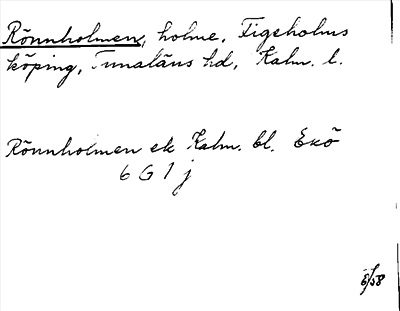 Rönnholmen, holme, Figeholms
köping, Tunaläns hd, Kalm. l.
Rönnholmen ek Kalm. bl. Ekö
6 G 1 j
8/58